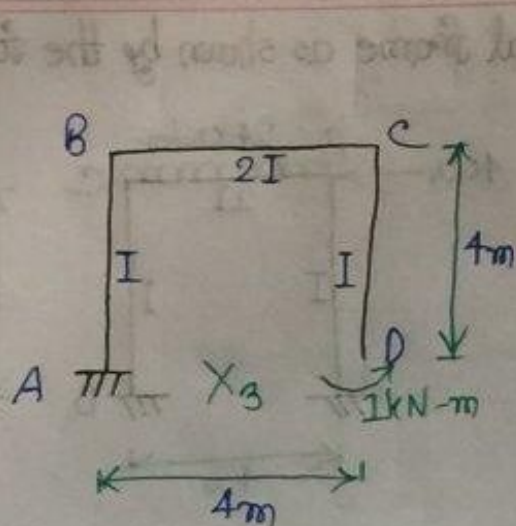 B
C
2I
I
I
4m
D
A
X3
1kN-m
4m